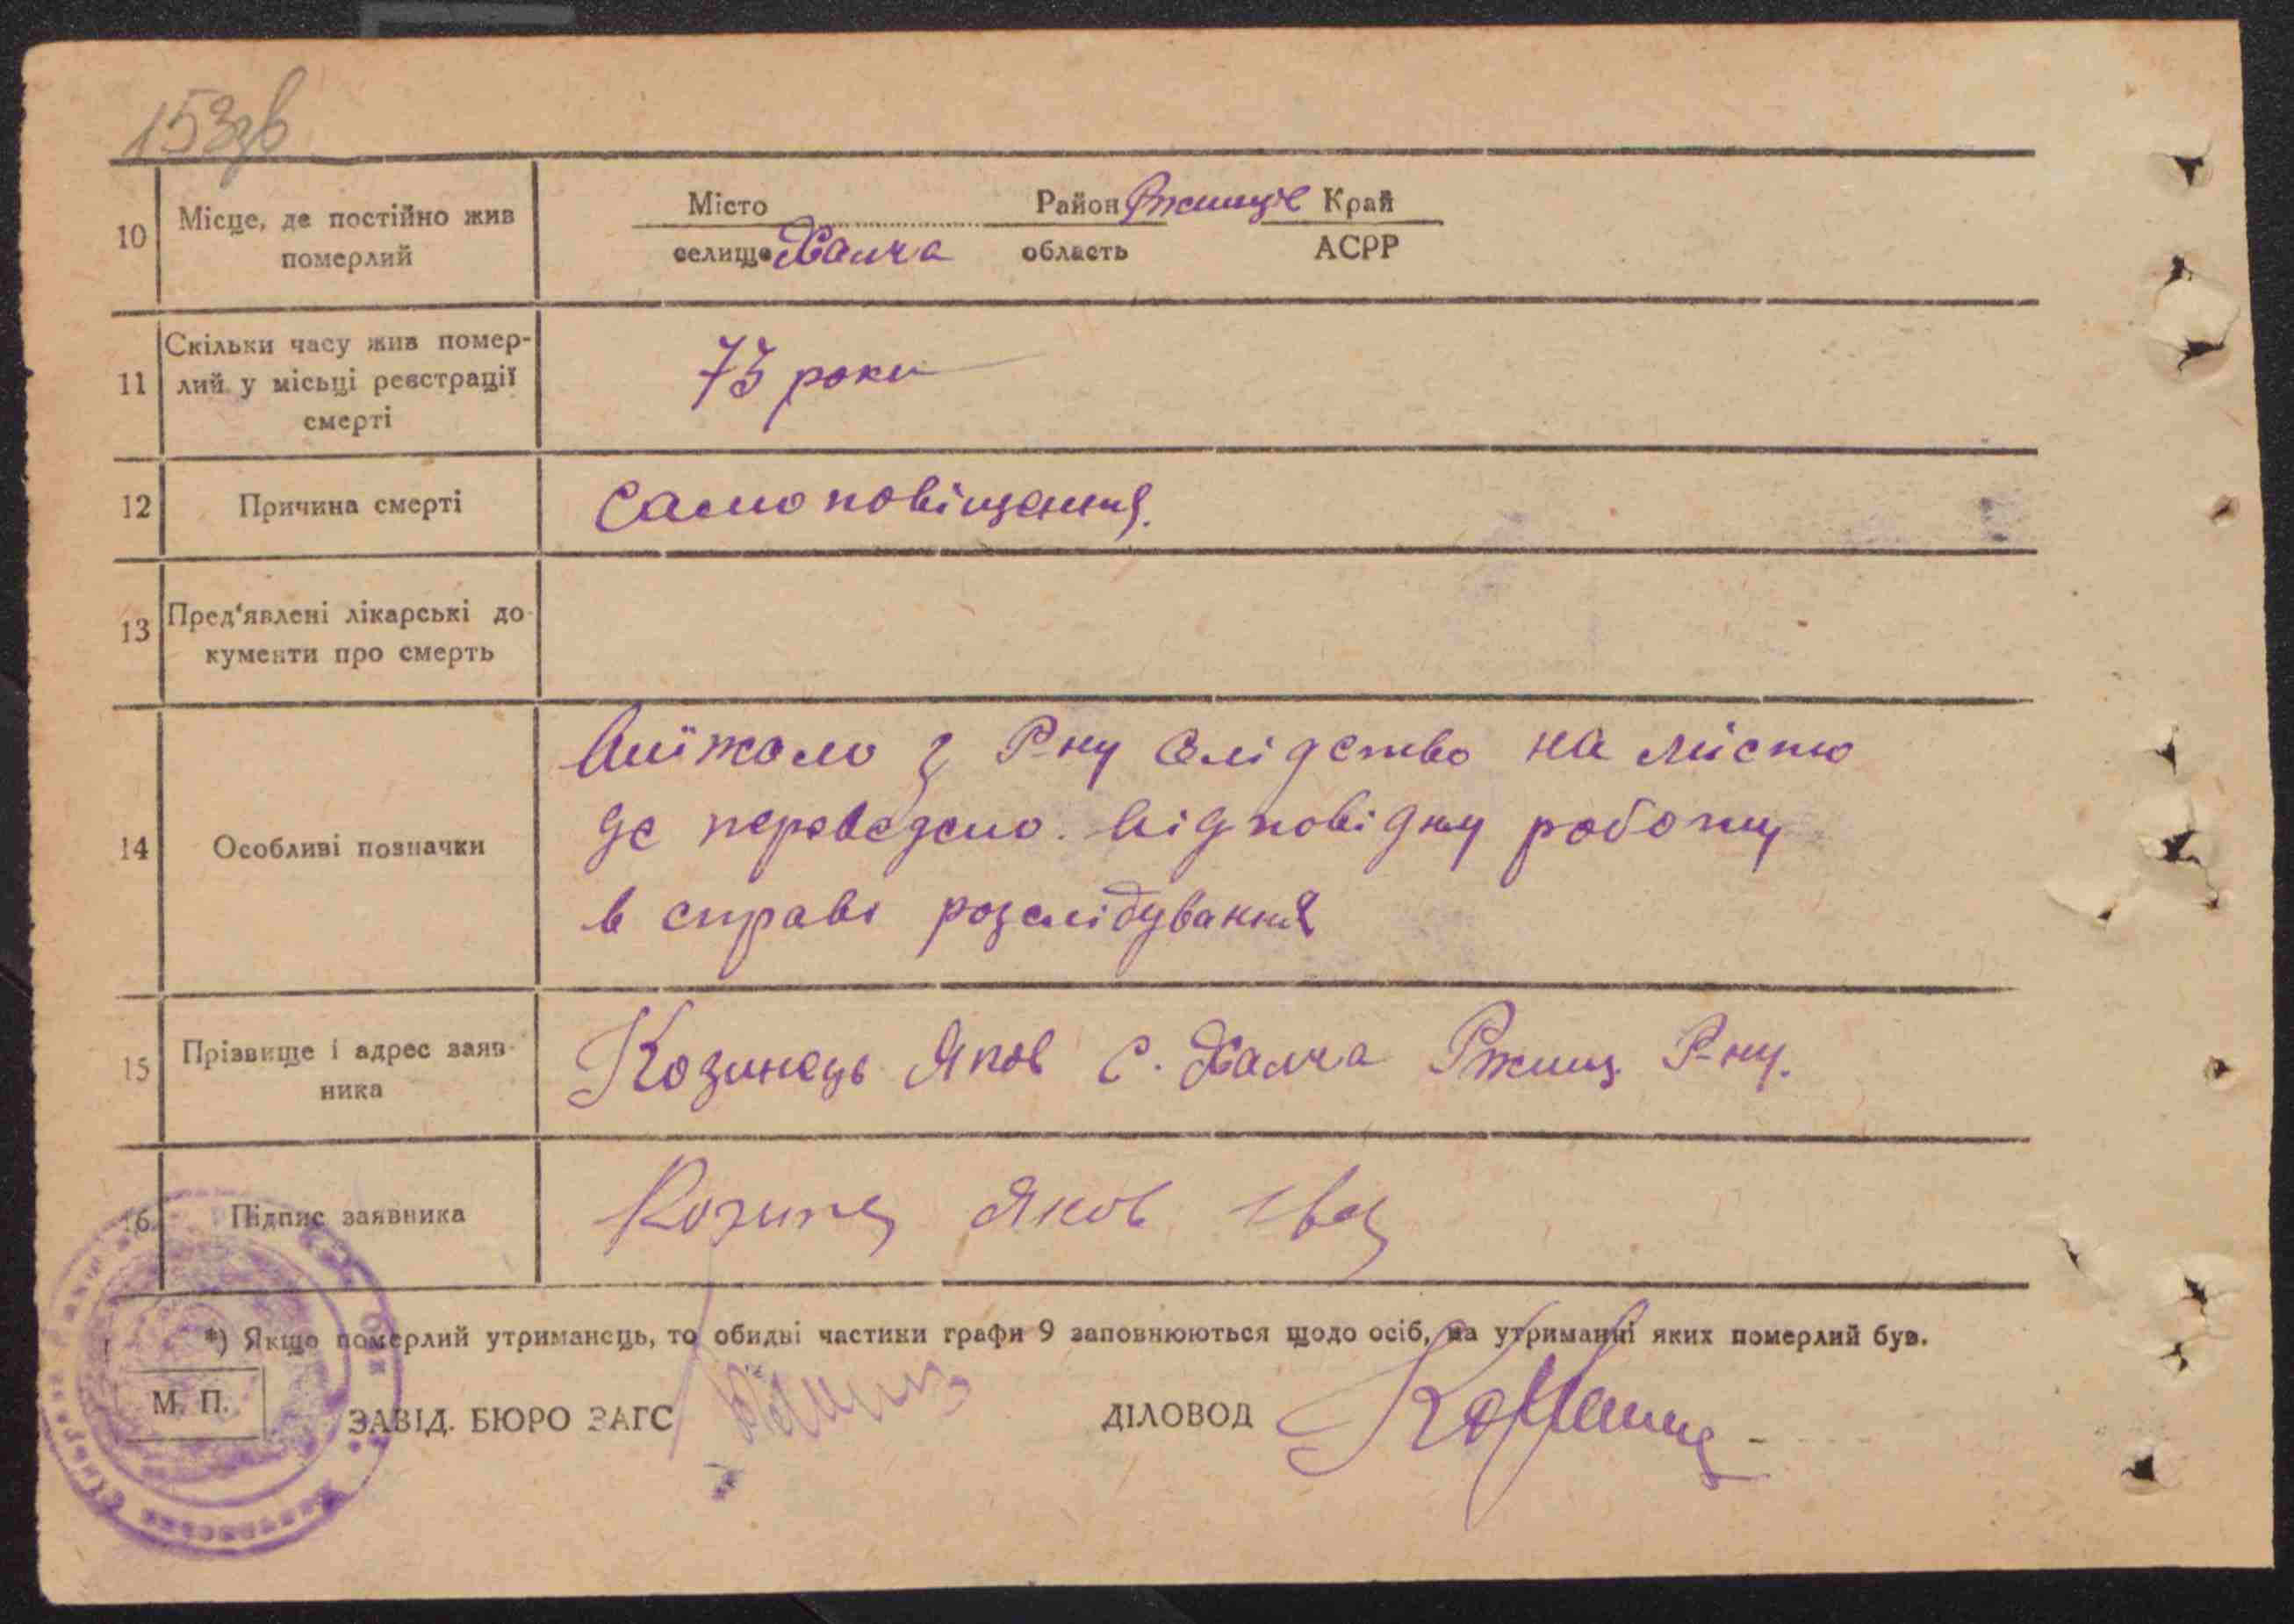 153зв
10 Місце, де постійно жив померлий
Місто Район Ржищів Край
селище Халча область АСРР
11 Скільки часу жив помер-
лий у місьці реєстрації
смерті
73 роки
12 Причина смерті Самоповіщення.
13 Пред'явлені лікарські до-
кументи про смерть
14 Особливі позначки
Виїжало з Р-ну Слідство на місто
де переведено відповідну роботу
в справі розслідування
15 Прізвище і адрес заяв-
ника
Козинець Яков С. Халча Ржищ. Р-ну.
16 Підпис заявника Козинец Яков
*) Якщо померлий утриманець, то обидві частини графи 9 заповнюються щодо осіб, на утриманні яких померлий був.
М. П.
ЗАВІД. БЮРО ЗАГС ДІЛОВОД